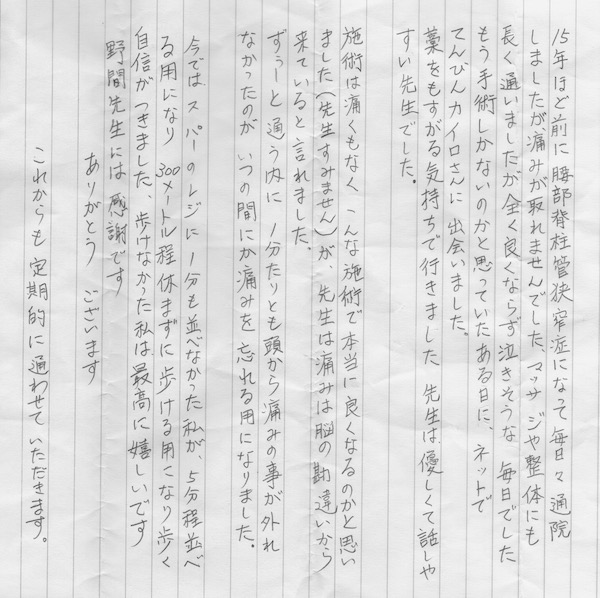 15年ほど前に腰部脊柱管狭窄症になって毎日々通院
しましたが痛みが取れませんでした、マッサージや整体にも
長く通いましたが全く良くならず泣きそうな 毎日でした
もう手術しかないのかと思っていたある日に、ネットで
てんびんカイロさんに 出会いました。
藁をもすがる気持ちで行きました 先生は、優しくて話しや
すい先生でした。
施術は痛くもなく、こんな施術で本当に良くなるのかと思い
ました(先生すみません)が、先生は痛みは脳の勘違いから
来ていると言れました。
ずぅーと通う内に 1分たりとも頭から痛みの事が外れ
なかったのが いつの間にか痛みを 忘れる用になりました。
今ではスーパーのレジに1分も並べなかった私が、5分程並べ
る用になり 300メートル程休まずに歩ける用になり歩く
自信がつきました、歩けなかった私は最高に嬉しいです
野間先生には感謝です
ありがとう ございます
これからも定期的に通わせていただきます。